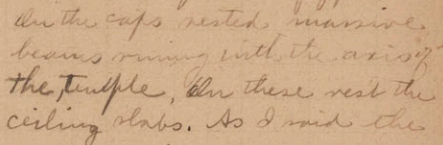 On the caps rested massive
beams runing with the axis of
the, temple, On these rest the
ceiling slabs. As I said the